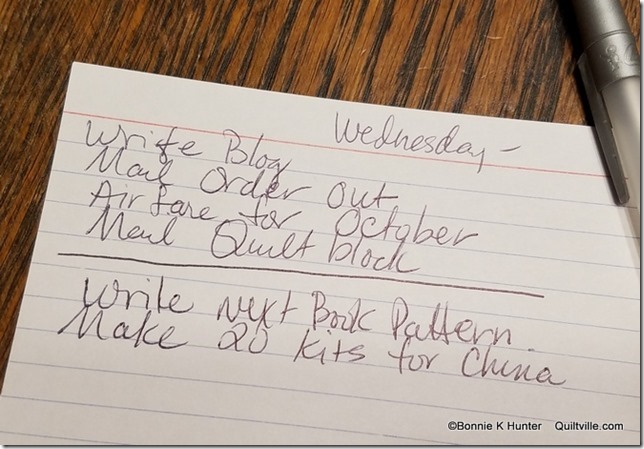 Wednesday –
Write Blog
Mail Order Out
Airfare for October
Mail Quilt block
Write Next Book Pattern
Make 20 Kits for China
©Bonnie K Hunter Quiltville.com